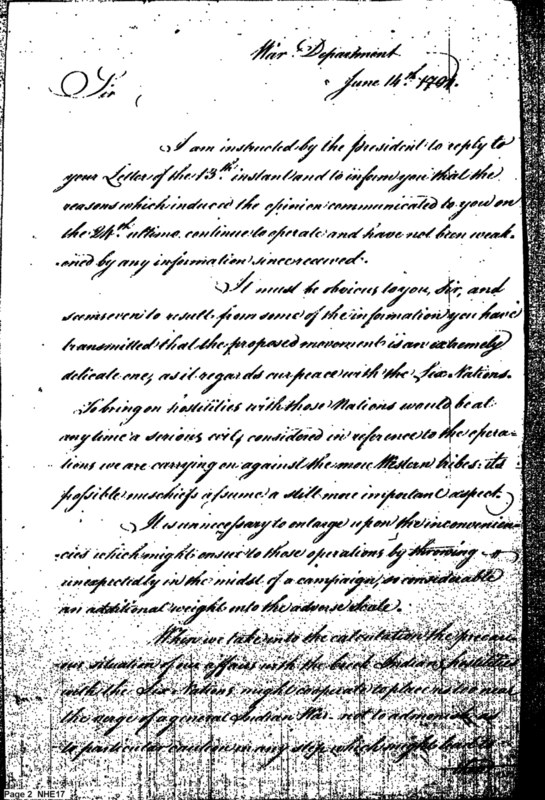 War Department
June 14th 1794.
Sir
I am instructed by the President to reply to
your Letter of the 13th instant and to inform you that the
reasons which induced the opinion communicated to you on
the 24th ultimo continue to operate and have not been weak-
ened by any information since received.
It must be obvious to you, Sir, and
seems even to result from some of the information you have
transmitted that the proposed movement is an extremely
delicate one, as it regards our peace with the Six Nations.
To bring on hostilities with those Nations would be at
any time a serious evil, considered in reference to the opera-
tions we are carrying on against the more Western tribes: its
possible mischiefs assume a still more important aspect.
It is unnecessary to enlarge upon the inconvenien-
cies which might ensue to those operations by throwing
unexpectedly in the midst of a campaign, so considerable
an additional weight into the adverse scale.
When we take into the calculation the precari-
ous situation of our affairs with the Creek Indians, hostilities
with the Six Nations might cooperate to place us too near
the verge of a general Indian War not to admonish us
to particular caution in any step which might lead to
Page 2 NHE17